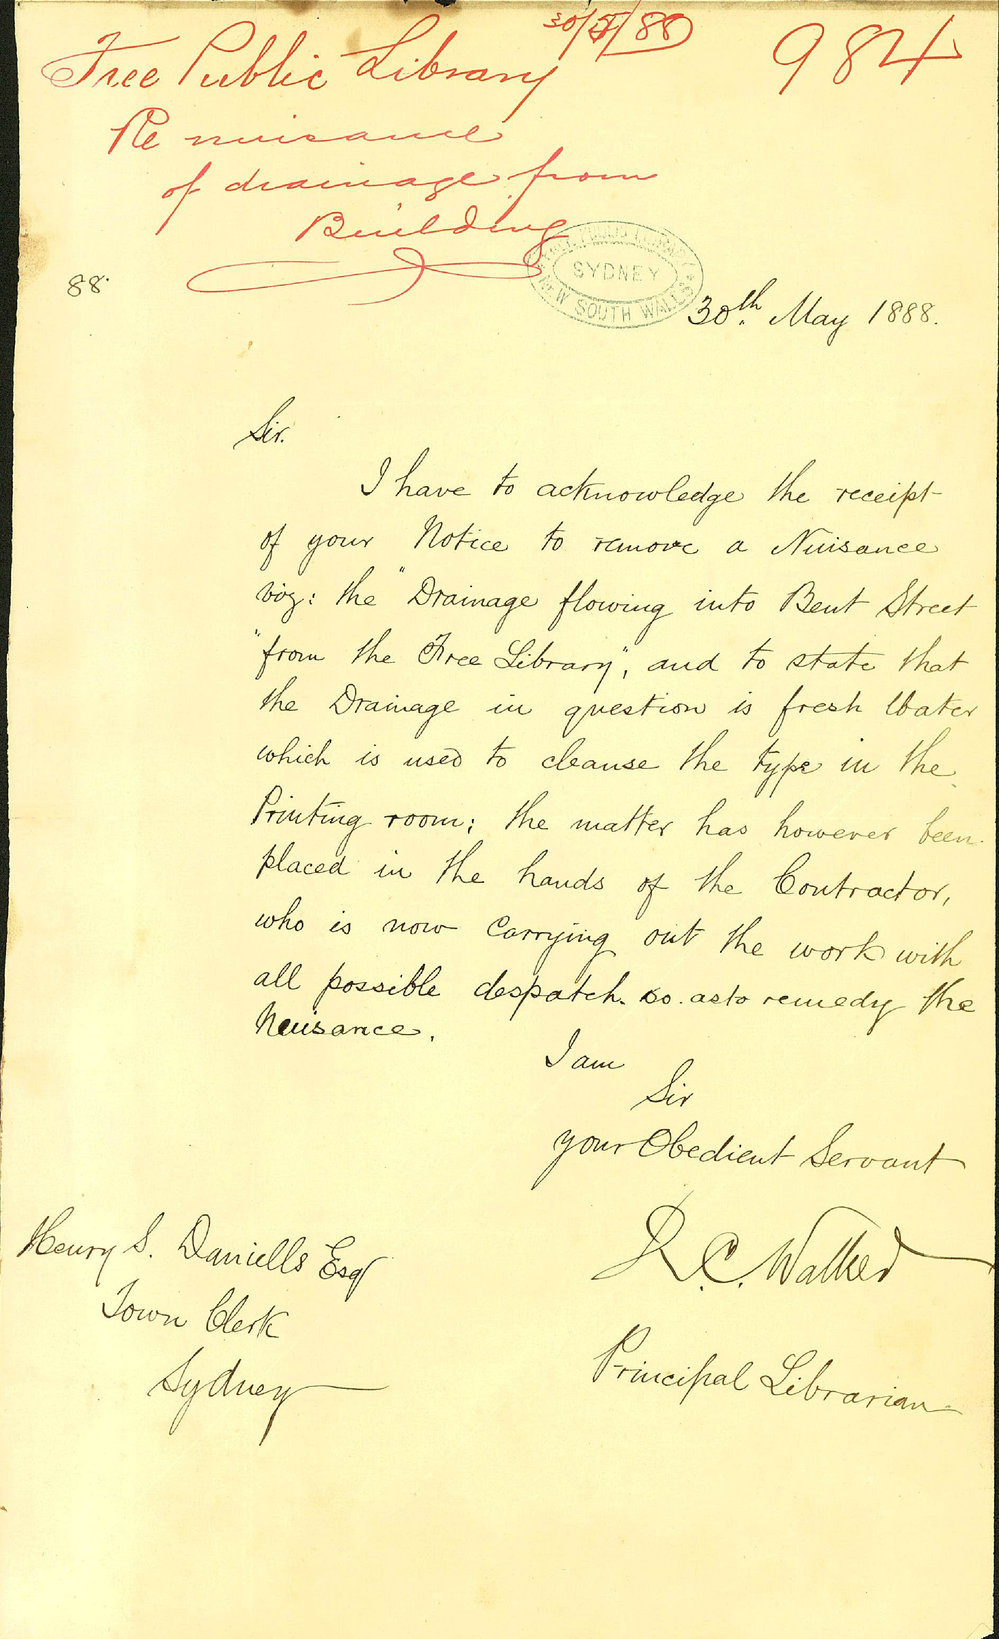 30/5/88
984
Free Public Library
Re nuisance
of drainage from
Building
FREE PUBLIC LIBRARY
SYDNEY
NEW SOUTH WALES
88.
30th. May 1888.
Sir.
I have to acknowledge the receipt
of your Notice to remove a Nuisance
viz: the "Drainage flowing into Bent Street
"from the Free Library", and to state that
the Drainage in question is fresh Water
which is used to cleanse the type in the
Printing room; the matter has however been
placed in the hands of the Contractor,
who is now carrying out the work with
all possible despatch. so as to remedy the
Nuisance.
I am
Sir
your Obedient Servant
R. C. Walker
Principal Librarian
Henry S. Daniells Esq
Town Clerk
Sydney